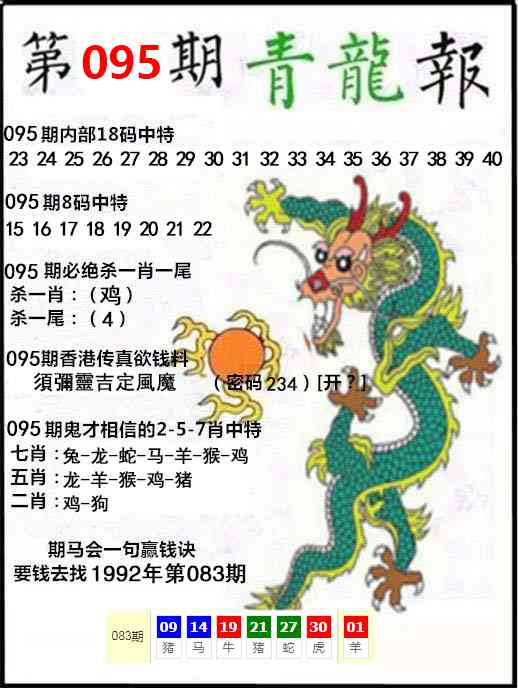 第095期 青龍報
095期内部18码中特
23 24 25 26 27 28 29 30 31 32 33 34 35 36 37 38 39 40
095期8码中特
15 16 17 18 19 20 21 22
095 期必绝杀一肖一尾
杀一肖：（鸡）
杀一尾：（4）
095期香港传真欲钱料
須彌靈吉定風魔 （密码234）[开？]
095期鬼才相信的2-5-7肖中特
七肖：兔-龙-蛇-马-羊-猴-鸡
五肖：龙-羊-猴-鸡-猪
二肖：鸡-狗
期马会一句赢钱诀
要钱去找1992年第083期
083期 09 14 19 21 27 30 01
猪 马 牛 猪 蛇 虎 羊